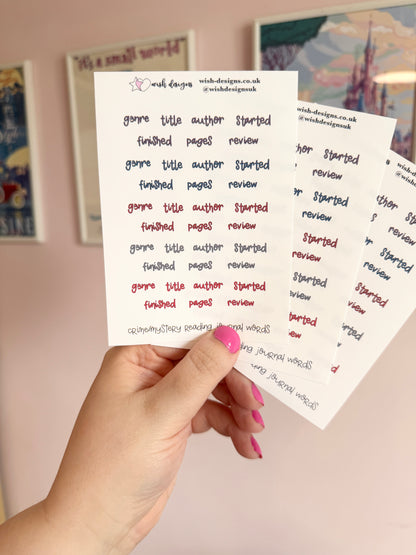 it's a small world
wish designs
wish-designs.co.uk
@wishdesignsuk
genre title author started
finished pages review
genre title author started
finished pages review
genre title author started
finished pages review
genre title author started
finished pages review
genre title author started
finished pages review
crime/mystery reading journal words
wish-designs.co.uk
@wishdesignsuk
started
review
started
review
started
review
started
review
started
review
journal words
started
review
started
review
started
review
started
review
started
review
journal words